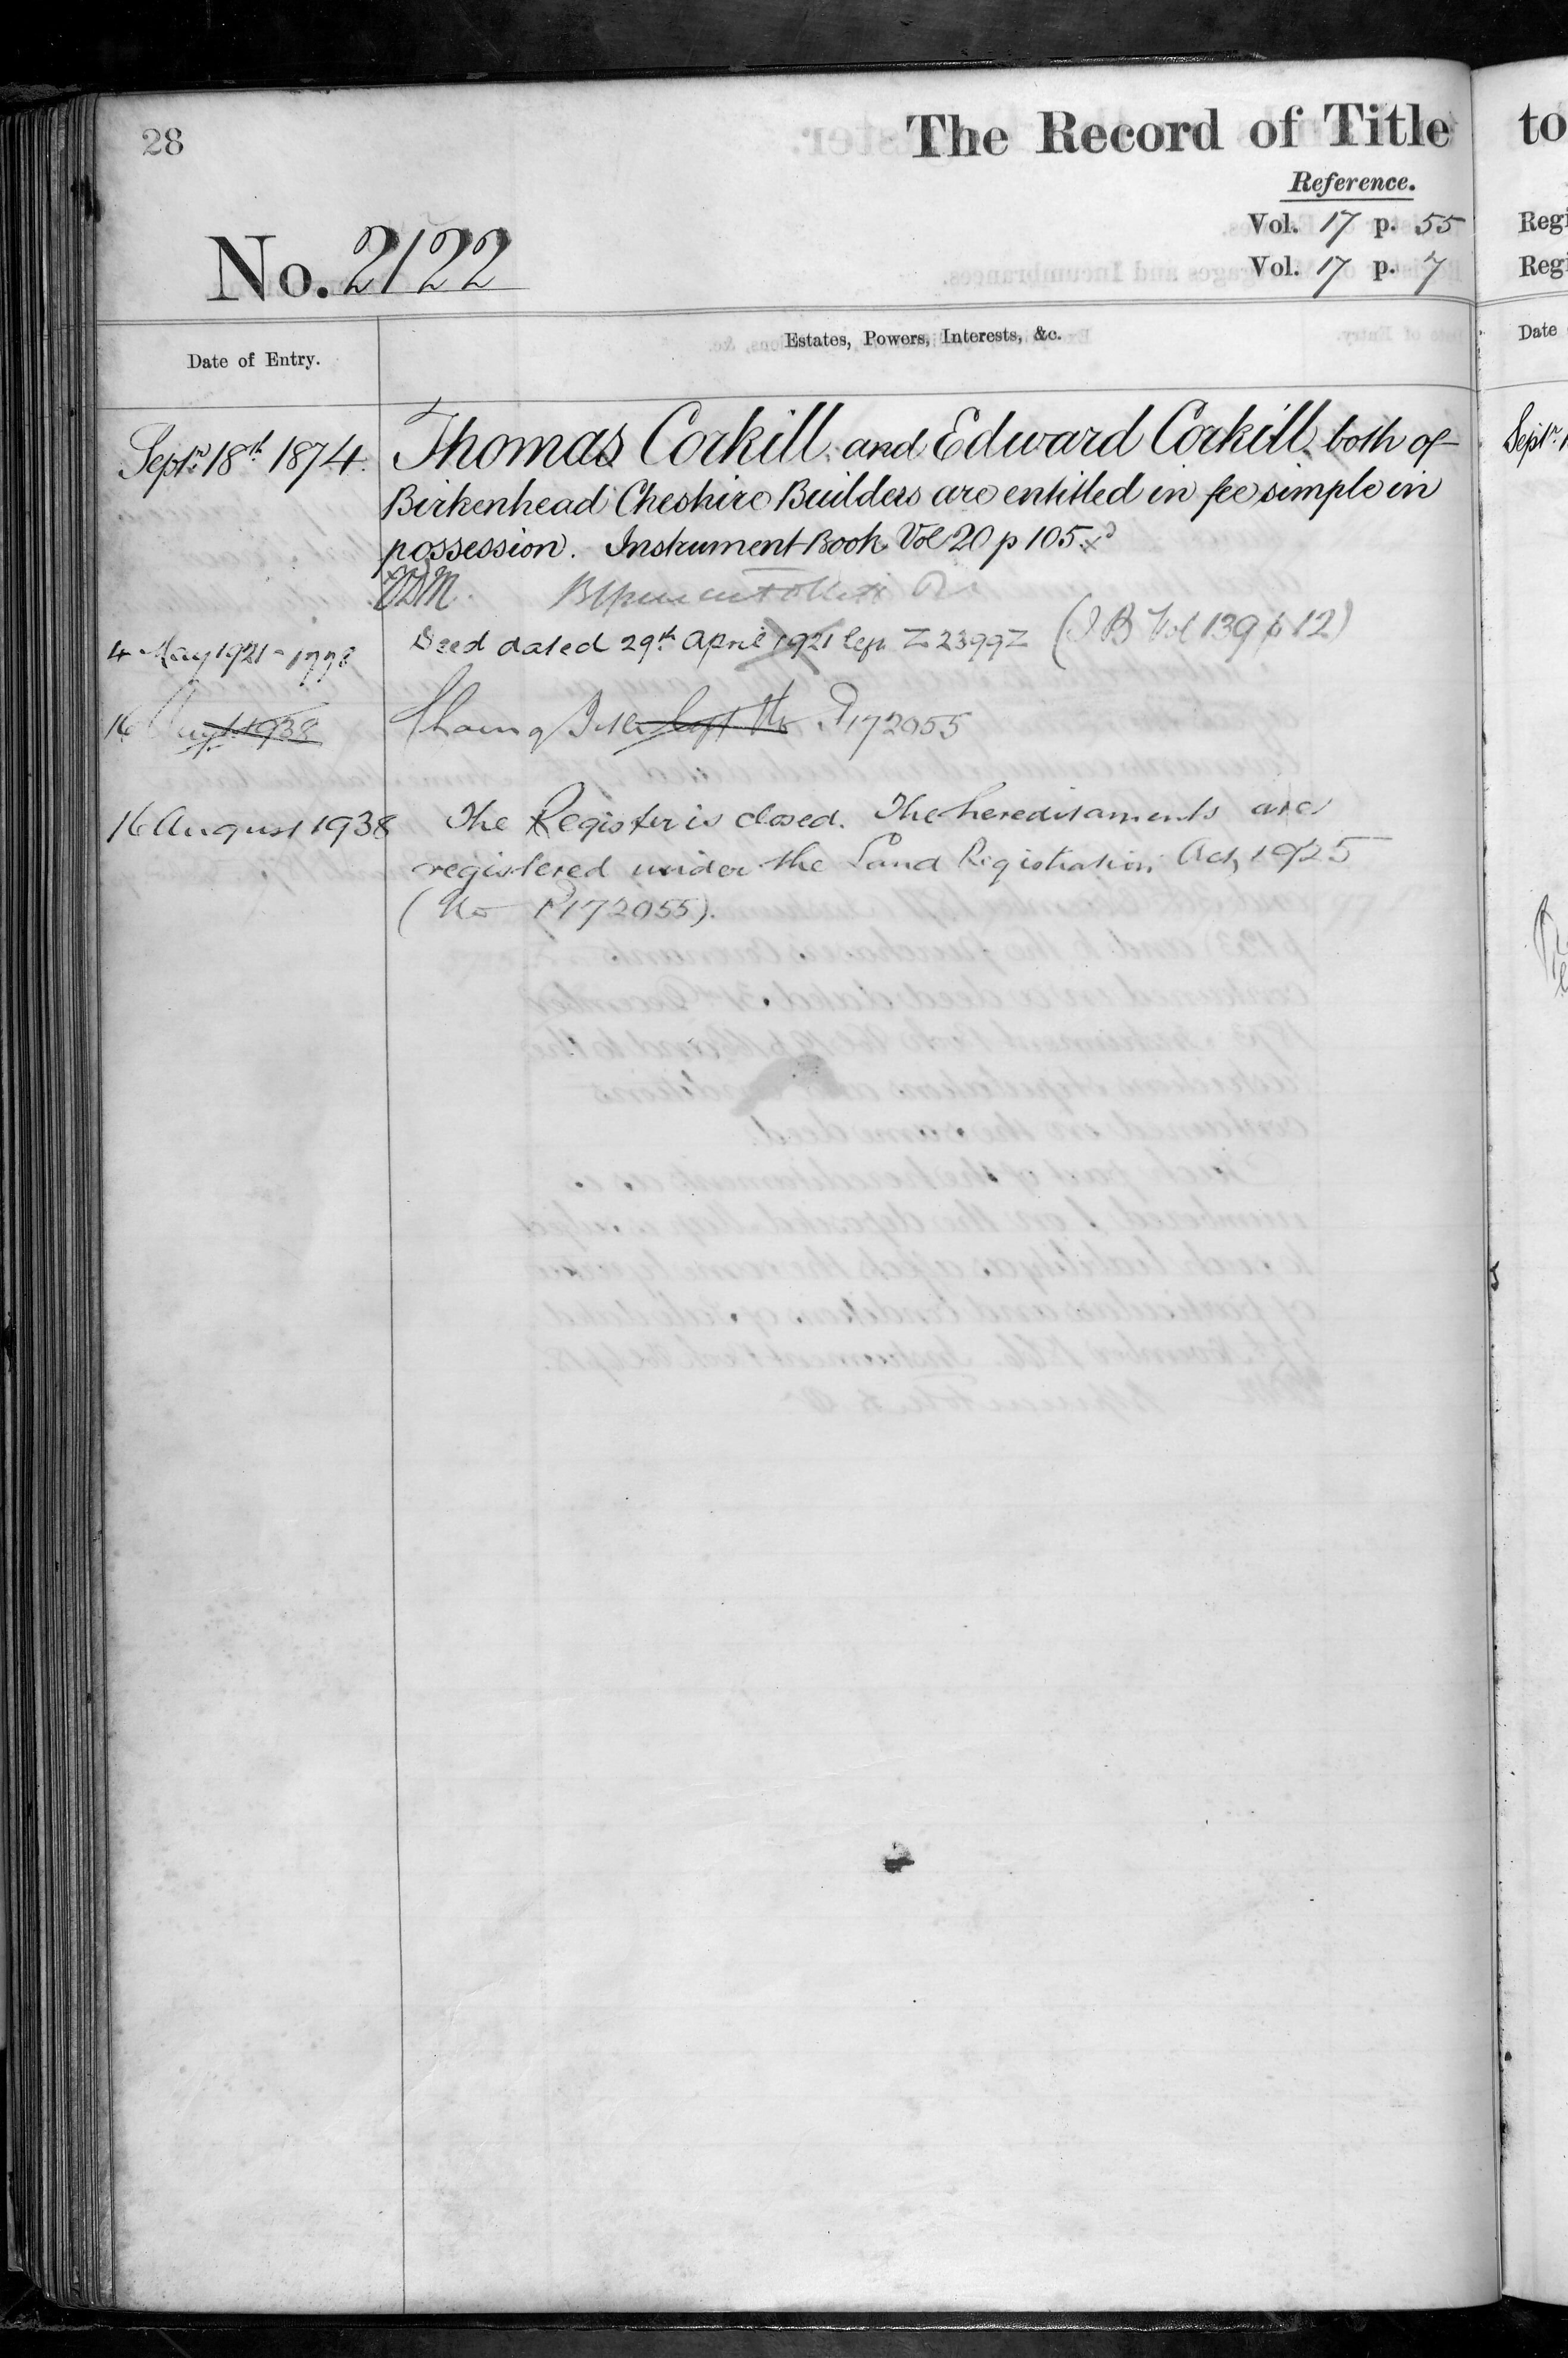 28
The Record of Title
Reference.
Vol. 17 p. 55
Vol. 17 p. 7
No. 2122
Date of Entry.
Estates, Powers, Interests, &c.
Septr. 18th 1874.
Thomas Corkill and Edward Corkill both of
Birkenhead Cheshire Builders are entitled in fee simple in
possession. Instrument Book Vol 20 p 105.
4 May 1921 - 1778
Deed dated 29th April 1921 Z 2399Z (I B Vol 139 p 12)
16 Augt 1938
P172055
16 August 1938
The Register is closed. The hereditaments are
registered under the Land Registration Act, 1925
(No P172055).
to
Regi
Regi
Date
Septr. 1